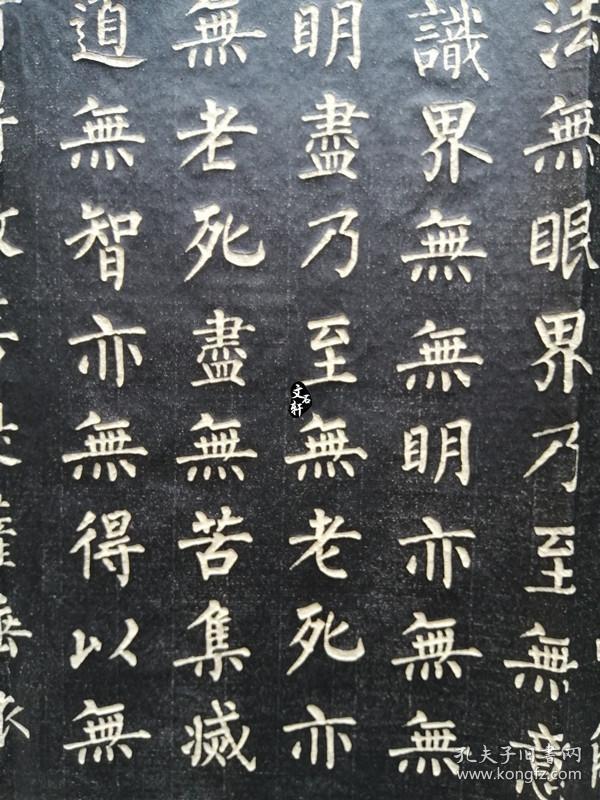 法無眼界乃至無意
識界無無明亦無無
明盡乃至無老死亦
無老死盡無苦集滅
道無智亦無得以無
文石轩
孔夫子旧书网
www.kongfz.com